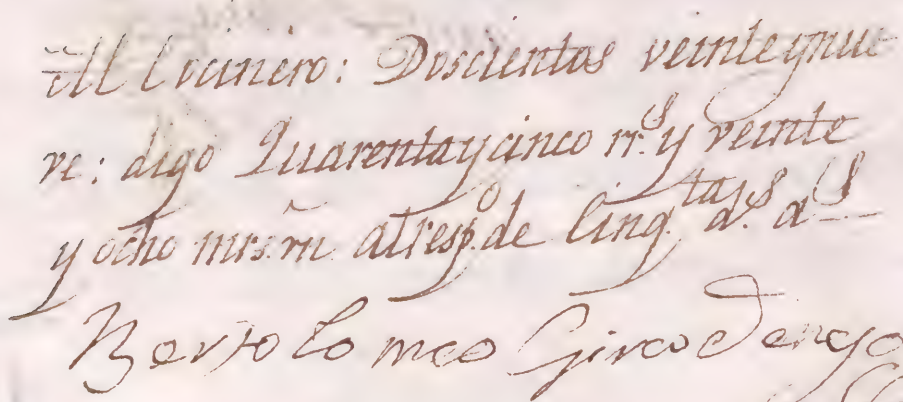 Al Cocinero: Doscientos veinteynue
ve: digo Quarentaycinco rr.s y veinte
y ocho mrs. vñ al resp.o de Cinq.ta d.s a.s
Bertolomeo Girodengo